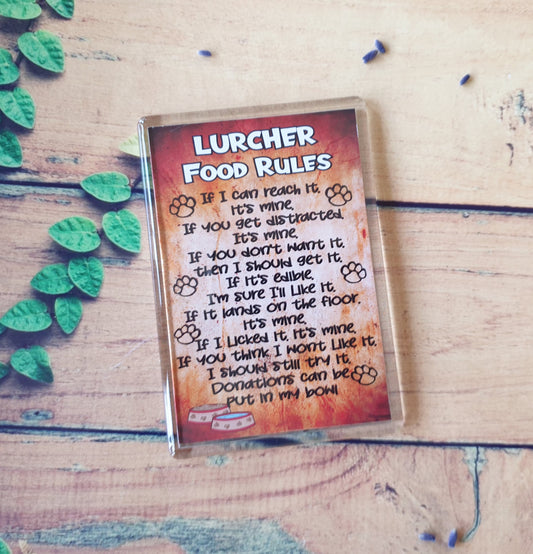 LURCHER
FOOD RULES
If I can reach it,
It's mine.
If you get distracted,
It's mine.
If you don't want it,
then I should get it.
If it's edible,
I'm sure I'll like it.
If it lands on the floor,
It's mine.
If I Licked it, it's mine.
If you think I wont Like it,
I should still try it.
Donations can be
put in my bowl